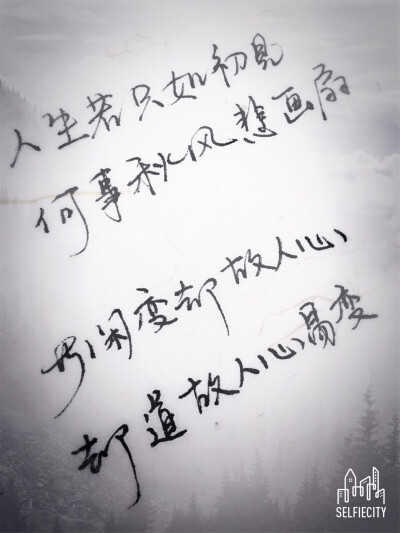 人生若只如初见
何事秋风悲画扇
等闲变却故人心
却道故人心易变
SELFIECITY